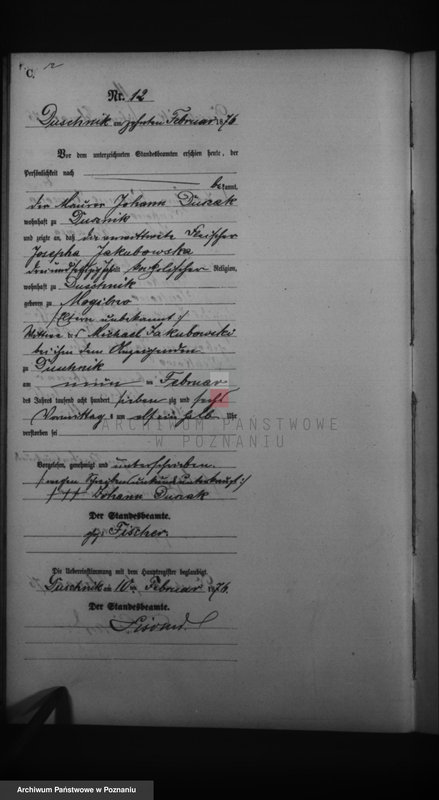 C.
Nr. 12
Duschnik am zehnten Februar 1876
Vor dem unterzeichneten Standesbeamten erschien heute, der
Persönlichkeit nach
bekannt,
der Maurer Johann Duszak
wohnhaft zu Dusznik
und zeigte an, daß die verwittwete Fleischer
Josepha Jakubowska
dreiundsechszig Jahr alt katholischer Religion,
wohnhaft zu Duschnik
geboren zu Mogilno
/Eltern unbekannt:/
Wittwe des Michael Jakubowski
bei ihm dem Anzeigenden
zu Duschnik
am neun ten Februar
des Jahres tausend acht hundert sieben zig und sechs
Vormittag s um elf ein halb Uhr
verstorben sei
ARCHIWUM PAŃSTWOWE
W POZNANIU
Vorgelesen, genehmigt und unterschrieben.
/wegen Schreibensunkunde unterkreuzt:/
/ ††† Johann Duszak
Der Standesbeamte.
gez. Fischer
Die Uebereinstimmung mit dem Hauptregister beglaubigt.
Duschnik am 10ten Februar 1876
Der Standesbeamte.
Archiwum Państwowe w Poznaniu